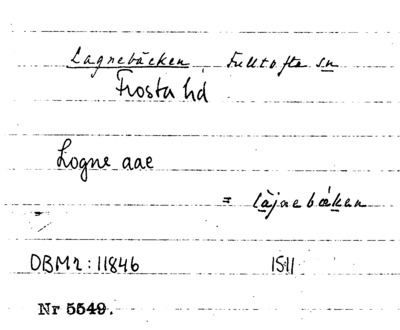 Lagnebäcken, Fulltofta sn
Frosta hd
Logne aae
= låjnebäken
OBM2:11846 1511
Nr 5549.